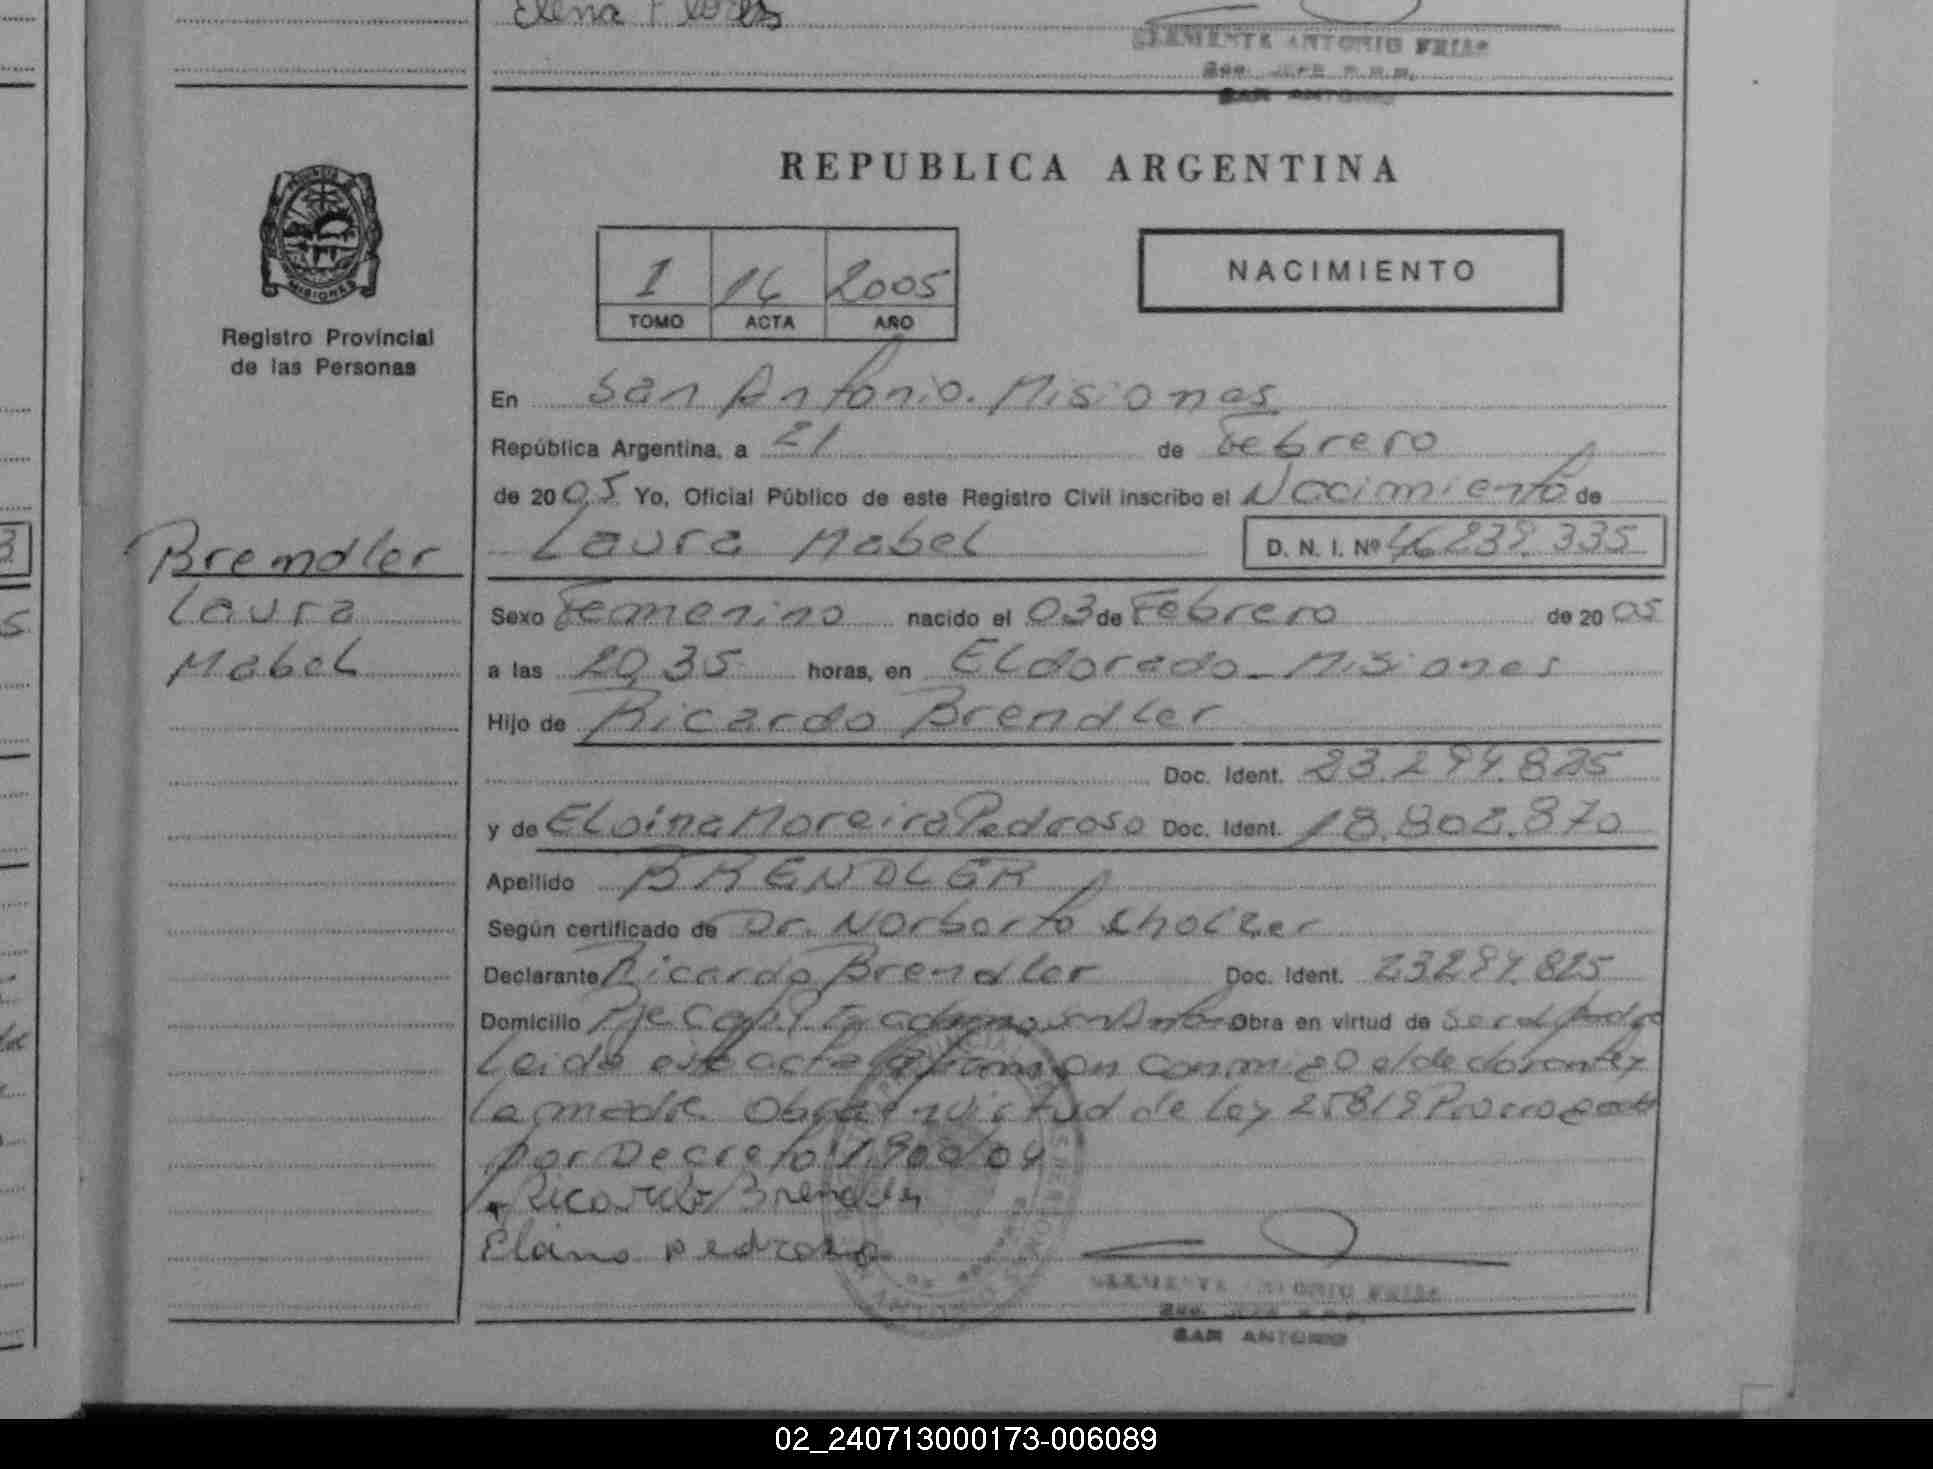 Elena Flores
CLEMENTE ANTONIO FRIAS
SAN ANTONIO
PROVINCIA DE
MISIONES
Registro Provincial
de las Personas
REPUBLICA ARGENTINA
1 16 2005
TOMO ACTA AÑO
NACIMIENTO
En San Antonio. Misiones
República Argentina, a 21 de Febrero
de 2005 Yo, Oficial Público de este Registro Civil inscribo el Nacimiento de
Laura Mabel D. N. I. Nº 46.239.335
Brendler
Laura
Mabel
Sexo Femenino nacido el 03 de Febrero de 2005
a las 20,35 horas, en Eldorado - Misiones
Hijo de Ricardo Brendler
Doc. Ident. 23.294.825
y de Eloina Moreira Pedroso Doc. Ident. 18.802.870
Apellido BRENDLER
Según certificado de Dr. Norberto
Declarante Ricardo Brendler Doc. Ident. 23294.825
Domicilio Obra en virtud de ser el
Leida este acta firman con migo el declarante y
la madre. Obra en virtud de Ley 25819
por Decreto 1.900/04
Ricardo Brendler
CLEMENTE ANTONIO FRIAS
SAN ANTONIO
02_240713000173-006089